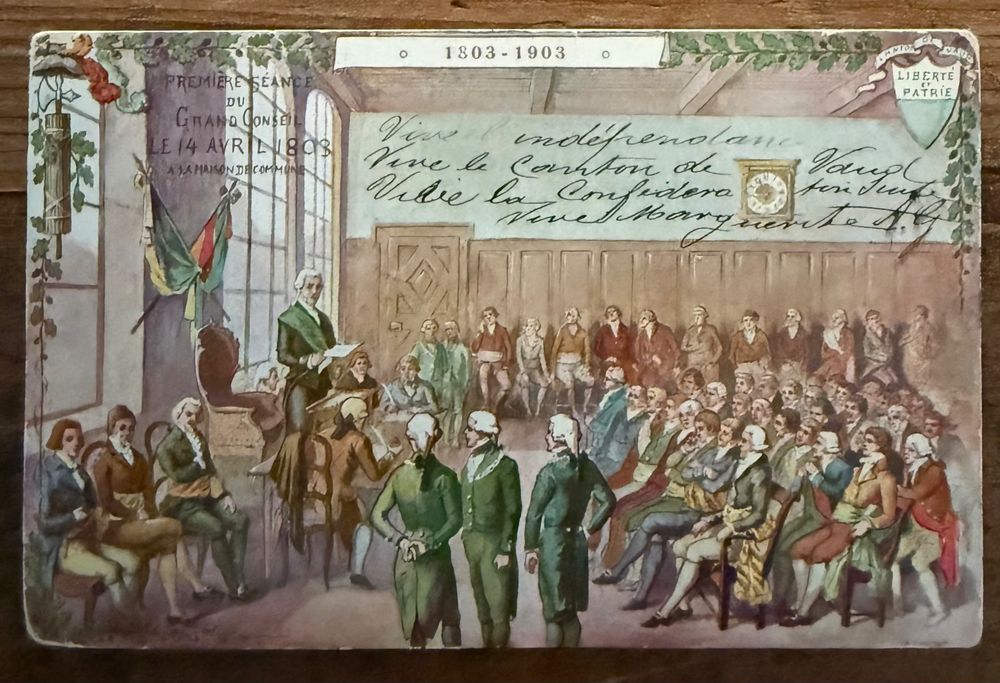 1803-1903
PREMIÈRE SÉANCE
DU
GRAND CONSEIL
LE 14 AVRIL 1803
A LA MAISON DE COMMUNE
CANTON DE VAUD
LIBERTÉ
ET
PATRIE
Vive l'indépendance
Vive le canton de Vaud
Vive la Confédération
Vive Marguerite A. G